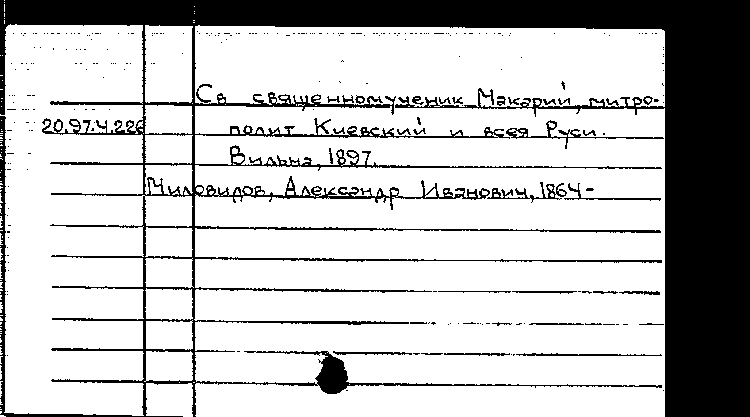 Св священномученик Макарий, митро-
20.97.4.226 полит Киевский и всея Руси.
Вильна, 1897.
Миловидов, Александр Иванович, 1864-